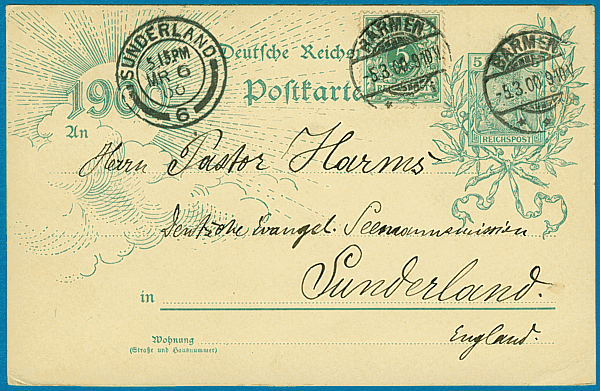 SUNDERLAND
5 15 PM
MR 6
00
6
Deutsche Reichs
1900
Postkarte
BARMEN
-5.3.00.9-10V.
BARMEN
-5.3.00.9-10V.
5
REICHSPOST
An
Herrn Pastor Harms
Deutsche Evangel. Seemannsmission
in Sunderland.
England.
Wohnung
(Straße und Hausnummer)